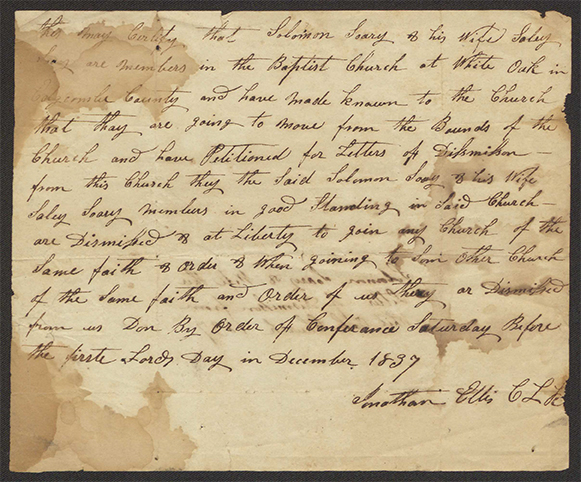 this may Certify that Solomon Soary & his Wife Saley
Soary are members in the Baptist Church at White Oak in
County and have made known to the Church
that thay are going to move from the Bounds of the
Church and have Petitioned for Letters of Dissmission —
from this Church they the Said Solomon Soary & his Wife
Saley Soary members in good Standing in Said Church —
are Dismissed & at Liberty to goin any Church of the
Same faith & Order & When goining to Som Other Church
of the Same faith and Order of us they or Dismissed
from us Don By Order of Conferance Saturday Before
the firste Lords Day in December 1837
Jonathan Ellis C L K